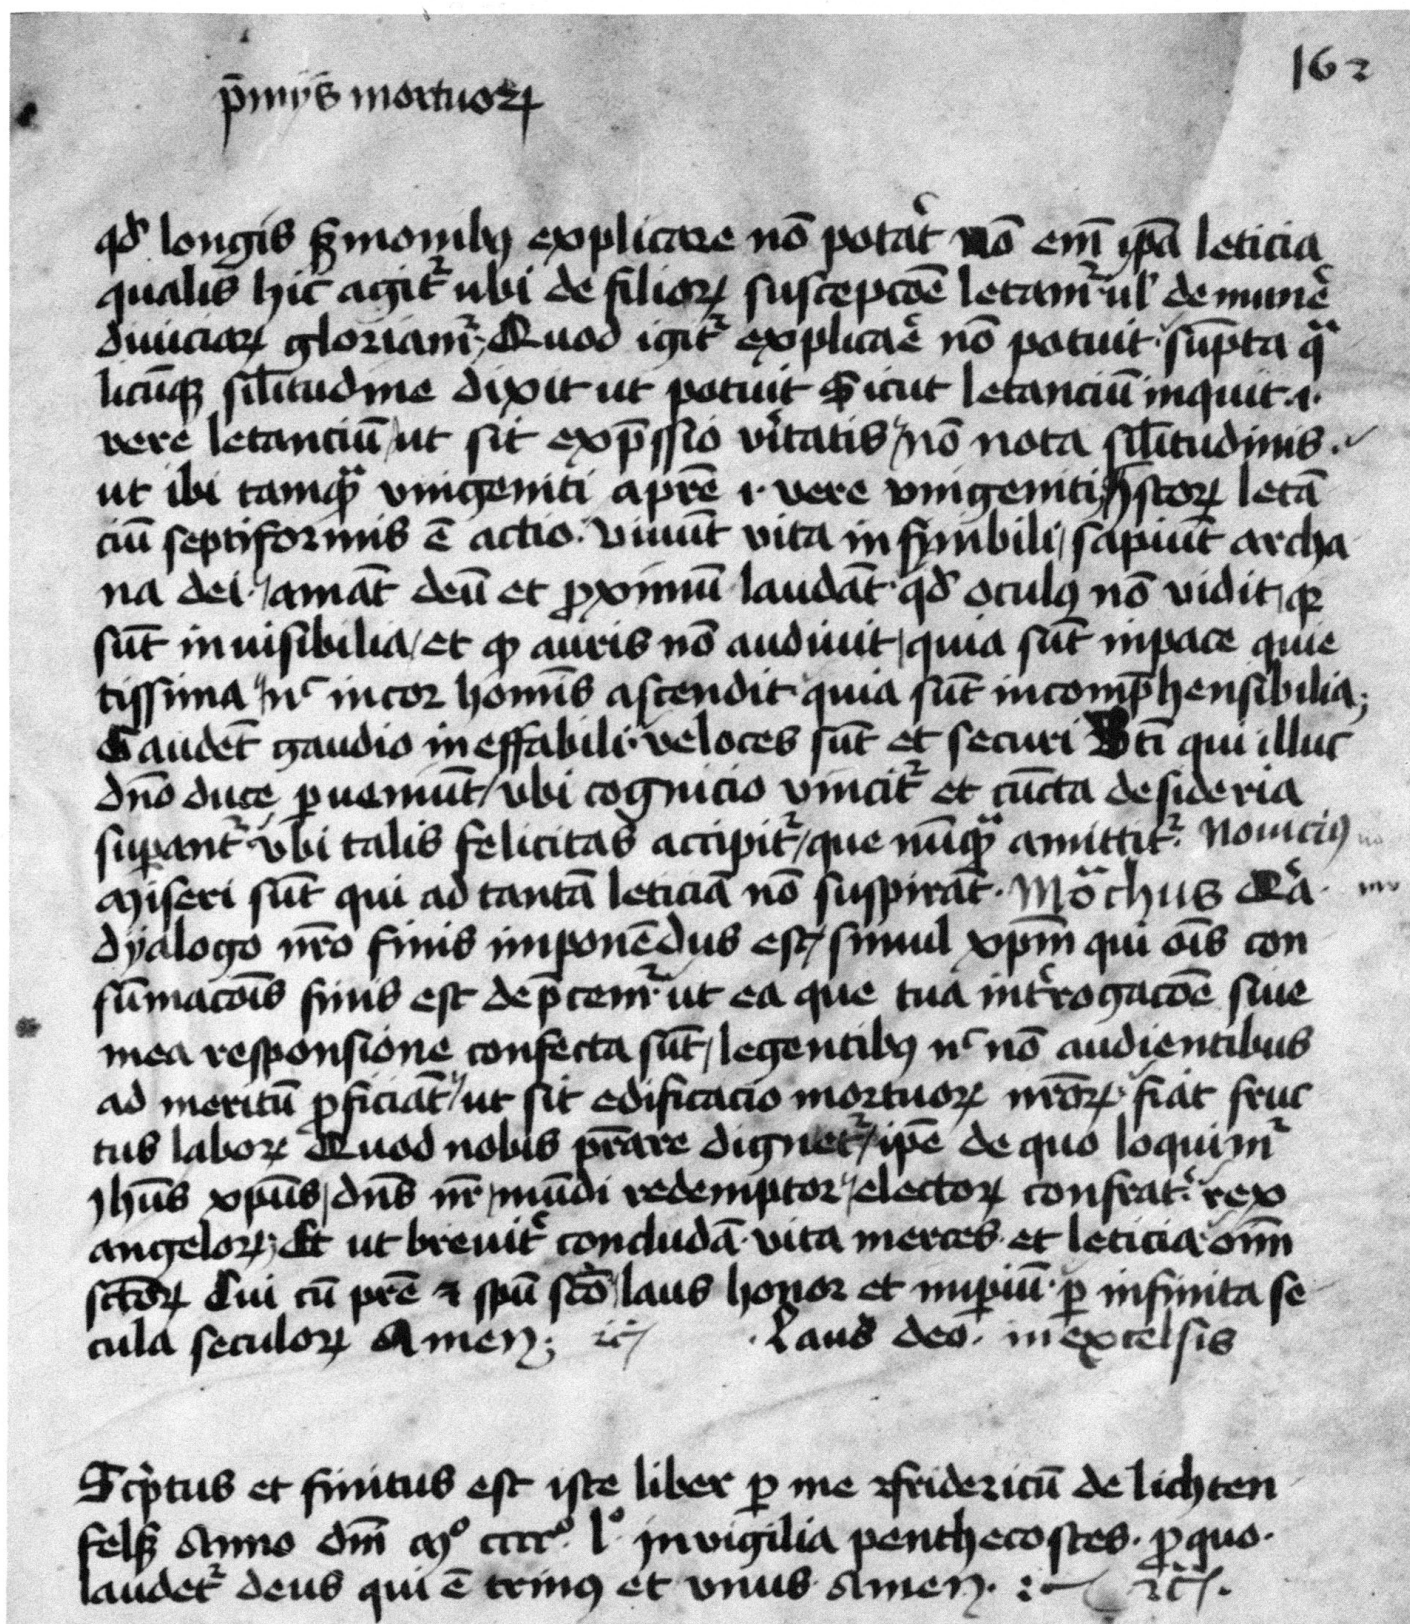 162
p̄mijs mortuoꝝ
qd̓ longis ẜmonibꝰ explicare nō potat̓ nō em̄ ip̄a leticia
qualis hic agit᷑ ubi de filioꝝ suscepcōe letam᷑ ul̓ de mune᷑
diuiciaꝝ gloriam᷑; Quod igit᷑ explicae᷑ nō potuit sūpta qᷓ
licūqꝫ sil̓itudine dixit ut potuit Sicut letanciū inquit .i.
vere letanciū / ut sit exp̄ssio v̓itatis / nō nota sil̓itudinis.
ut ibi tamqᷓ vnigeniti a pr̄e .i. vere vnigeniti / Istoꝝ letā
ciū septiformis ē actio. viuūt vita infinibili / sapiūt archa
na dei / amāt deū et ꝓximū laudāt qd̓ oculꝰ nō vidit / qꝛ
sūt inuisibilia / et ꝙ auris nō audiuit / quia sūt in pace quie
tissima / nᶜ in cor homīs ascendit quia sūt incomp̄hensibilia;
Gaudēt gaudio ineffabili. veloces sūt et securi Bt̄i qui illuc
dn̄o duce ꝑueniūt / vbi cognicio vincit᷑ et cūcta desideria
suꝑant᷑ vbi talis felicitas accipit᷑ / que nūqᷓ amittit᷑. Nouiciꝰ
Miseri sūt qui ad tantā leticiā nō suspirāt. Mōchus
dyalogo nr̄o finis imponēdus est / simul xp̄m qui oīs con
sūmacōis finis est dep̄cem᷑ ut ea que tua int̓rogacōe siue
mea responsione confecta sūt / legentibꝰ nᶜ nō audientibus
ad meritū ꝓficiāt / ut sit edificacio mortuoꝝ nr̄oꝝ fiat fruc
tus laboꝝ Quod nobis p̄rare dignet᷑ / ip̄e de quo loquim᷑
Jhūs xp̄us / dn̄s nr̄ / mūdi redemptor / electoꝝ confrat̓ rex
angeloꝝ; Et ut breuit̓ concludā. vita merces et leticia om̄
sctōꝝ Cui cū pr̄e ⁊ sp̄u sc̄o / laus honor et imꝑiū ꝑ infinita se
cula seculoꝝ Amen; ⁊c̄ . Laus deo. in excelsis
Sc̓ptus et finitus est iste liber ꝑ me ffridericū de lichten
felß Anno dm̄ Mº ccccº. lº In vigilia penthecostes. ꝓ quo.
laudet᷑ deus qui ē trinꝰ et vnus Amen. ⁊c̄.